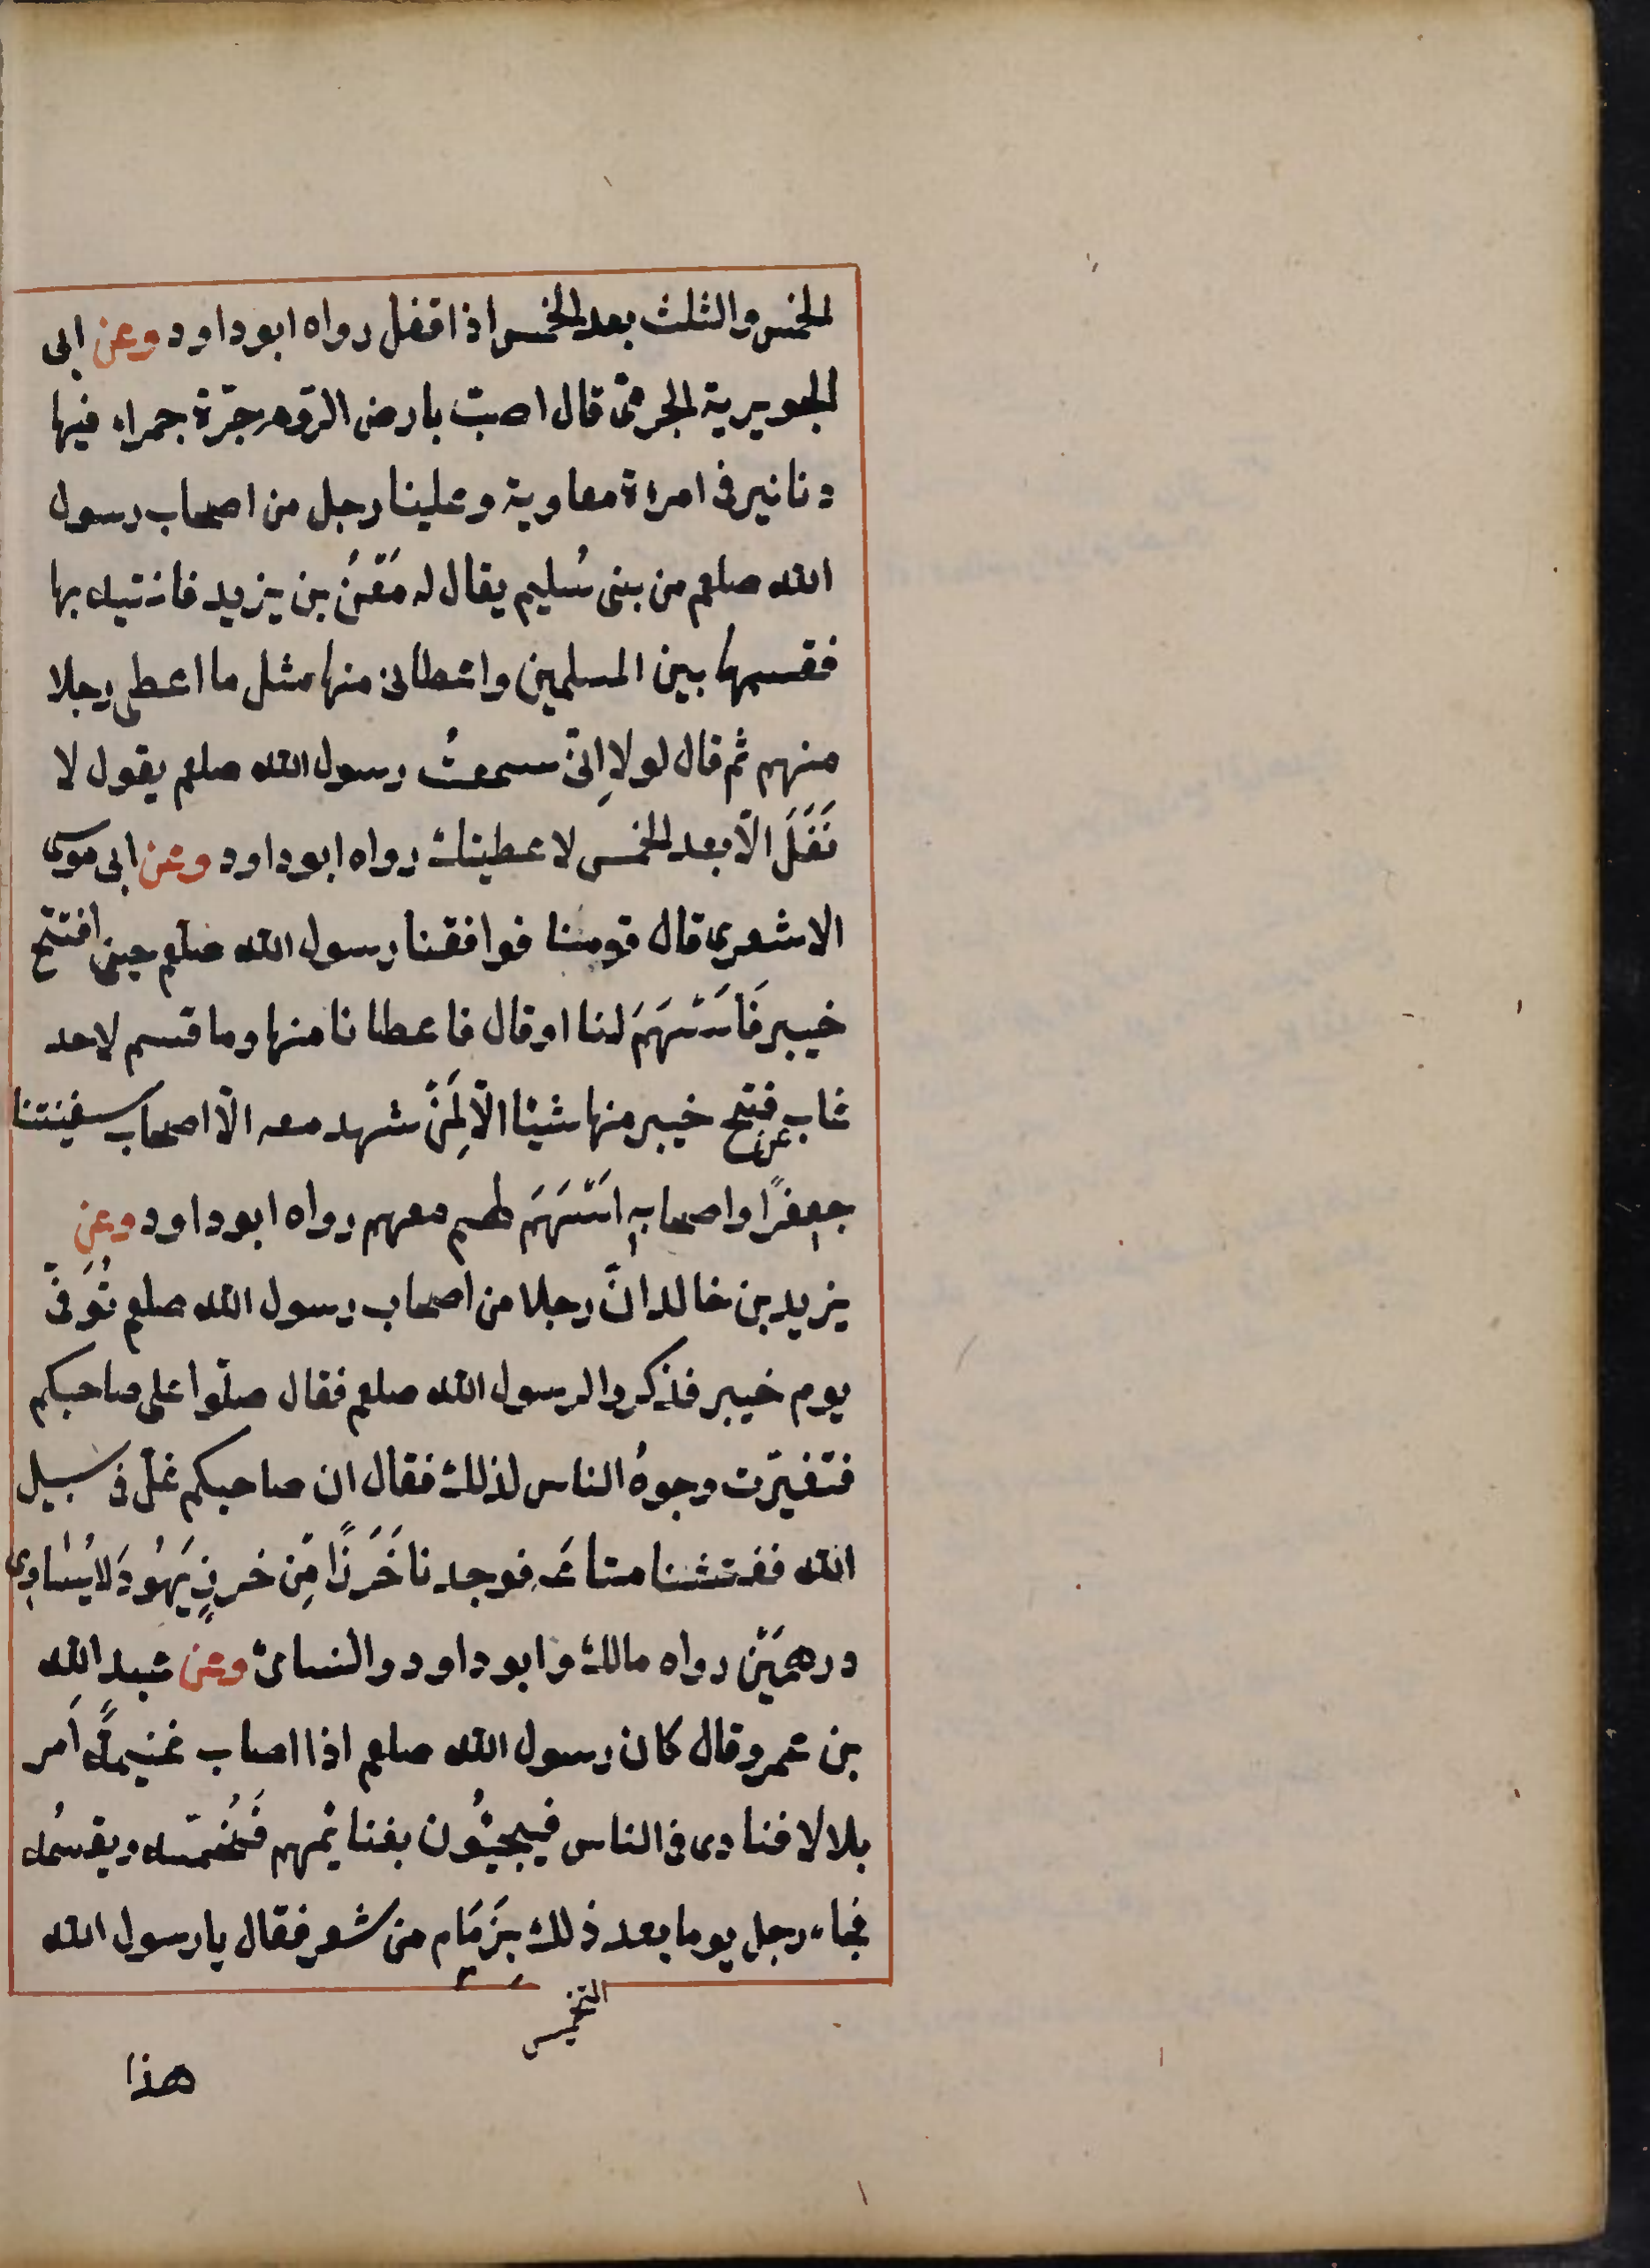 الخمس والثلث بعد الخمس اذا قفل رواه ابو داود وعن ابى
الجويرية الجرمىّ قال اصبت بارض الرّوم جرّة حمراء فيها
دنانير فى امراة معاوية وعلينا رجل من اصحاب رسول
الله صلعم من بنى سُليم يقال له مَعْنُ بن يزيد فاتيته بها
فقسمها بين المسلمين واعطانى منها مثل ما اعطى رجلا
منهم ثم قال لولا اِنّى سمعتُ رسول الله صلعم يقول لا
نَفَلَ الّا بعد الخمس لاعطيتك رواه ابو داود وعن ابى موسى
الاشعرى قال قدمنا فوافقنا رسول الله صلعم حين افتتح
خيبر فَاَسْهَمَ لنا او قال فاعطانا منها وما قسم لاحد
غاب عن فتح خيبر منها شيئا الّا لِمَنْ شهد معه الّا اصحاب سفينتنا
جعفرًا واصحابه اَسْهَمَ لهم معهم رواه ابو داود وعن
يزيد بن خالد انّ رجلا من اصحاب رسول الله صلعم تُوَفّى
يوم خيبر فذكروا لرسول الله صلعم فقال صلّوا على صاحبكم
فتغيّرت وجوهُ الناس لذلك فقال ان صاحبكم غلّ فى سبيل
الله ففتشنا متاعَه فوجدنا خَرَزًا مِّن خرزِ يَهُودَ لا يُسَاوِى
درهمَيْن رواه مالك وابو داود والنسائ وعن عبد الله
بن عمرو قال كان رسول الله صلعم اذا اصاب غنيمةً اَمر
بلالا فنادى فى الناس فيجيئُون بغنائمهم فَيُخمّسه ويقسُمه
فجاء رجل يوما بعد ذلك بِزَمَام من شعر فقال يا رسول الله
التخميس
هذا